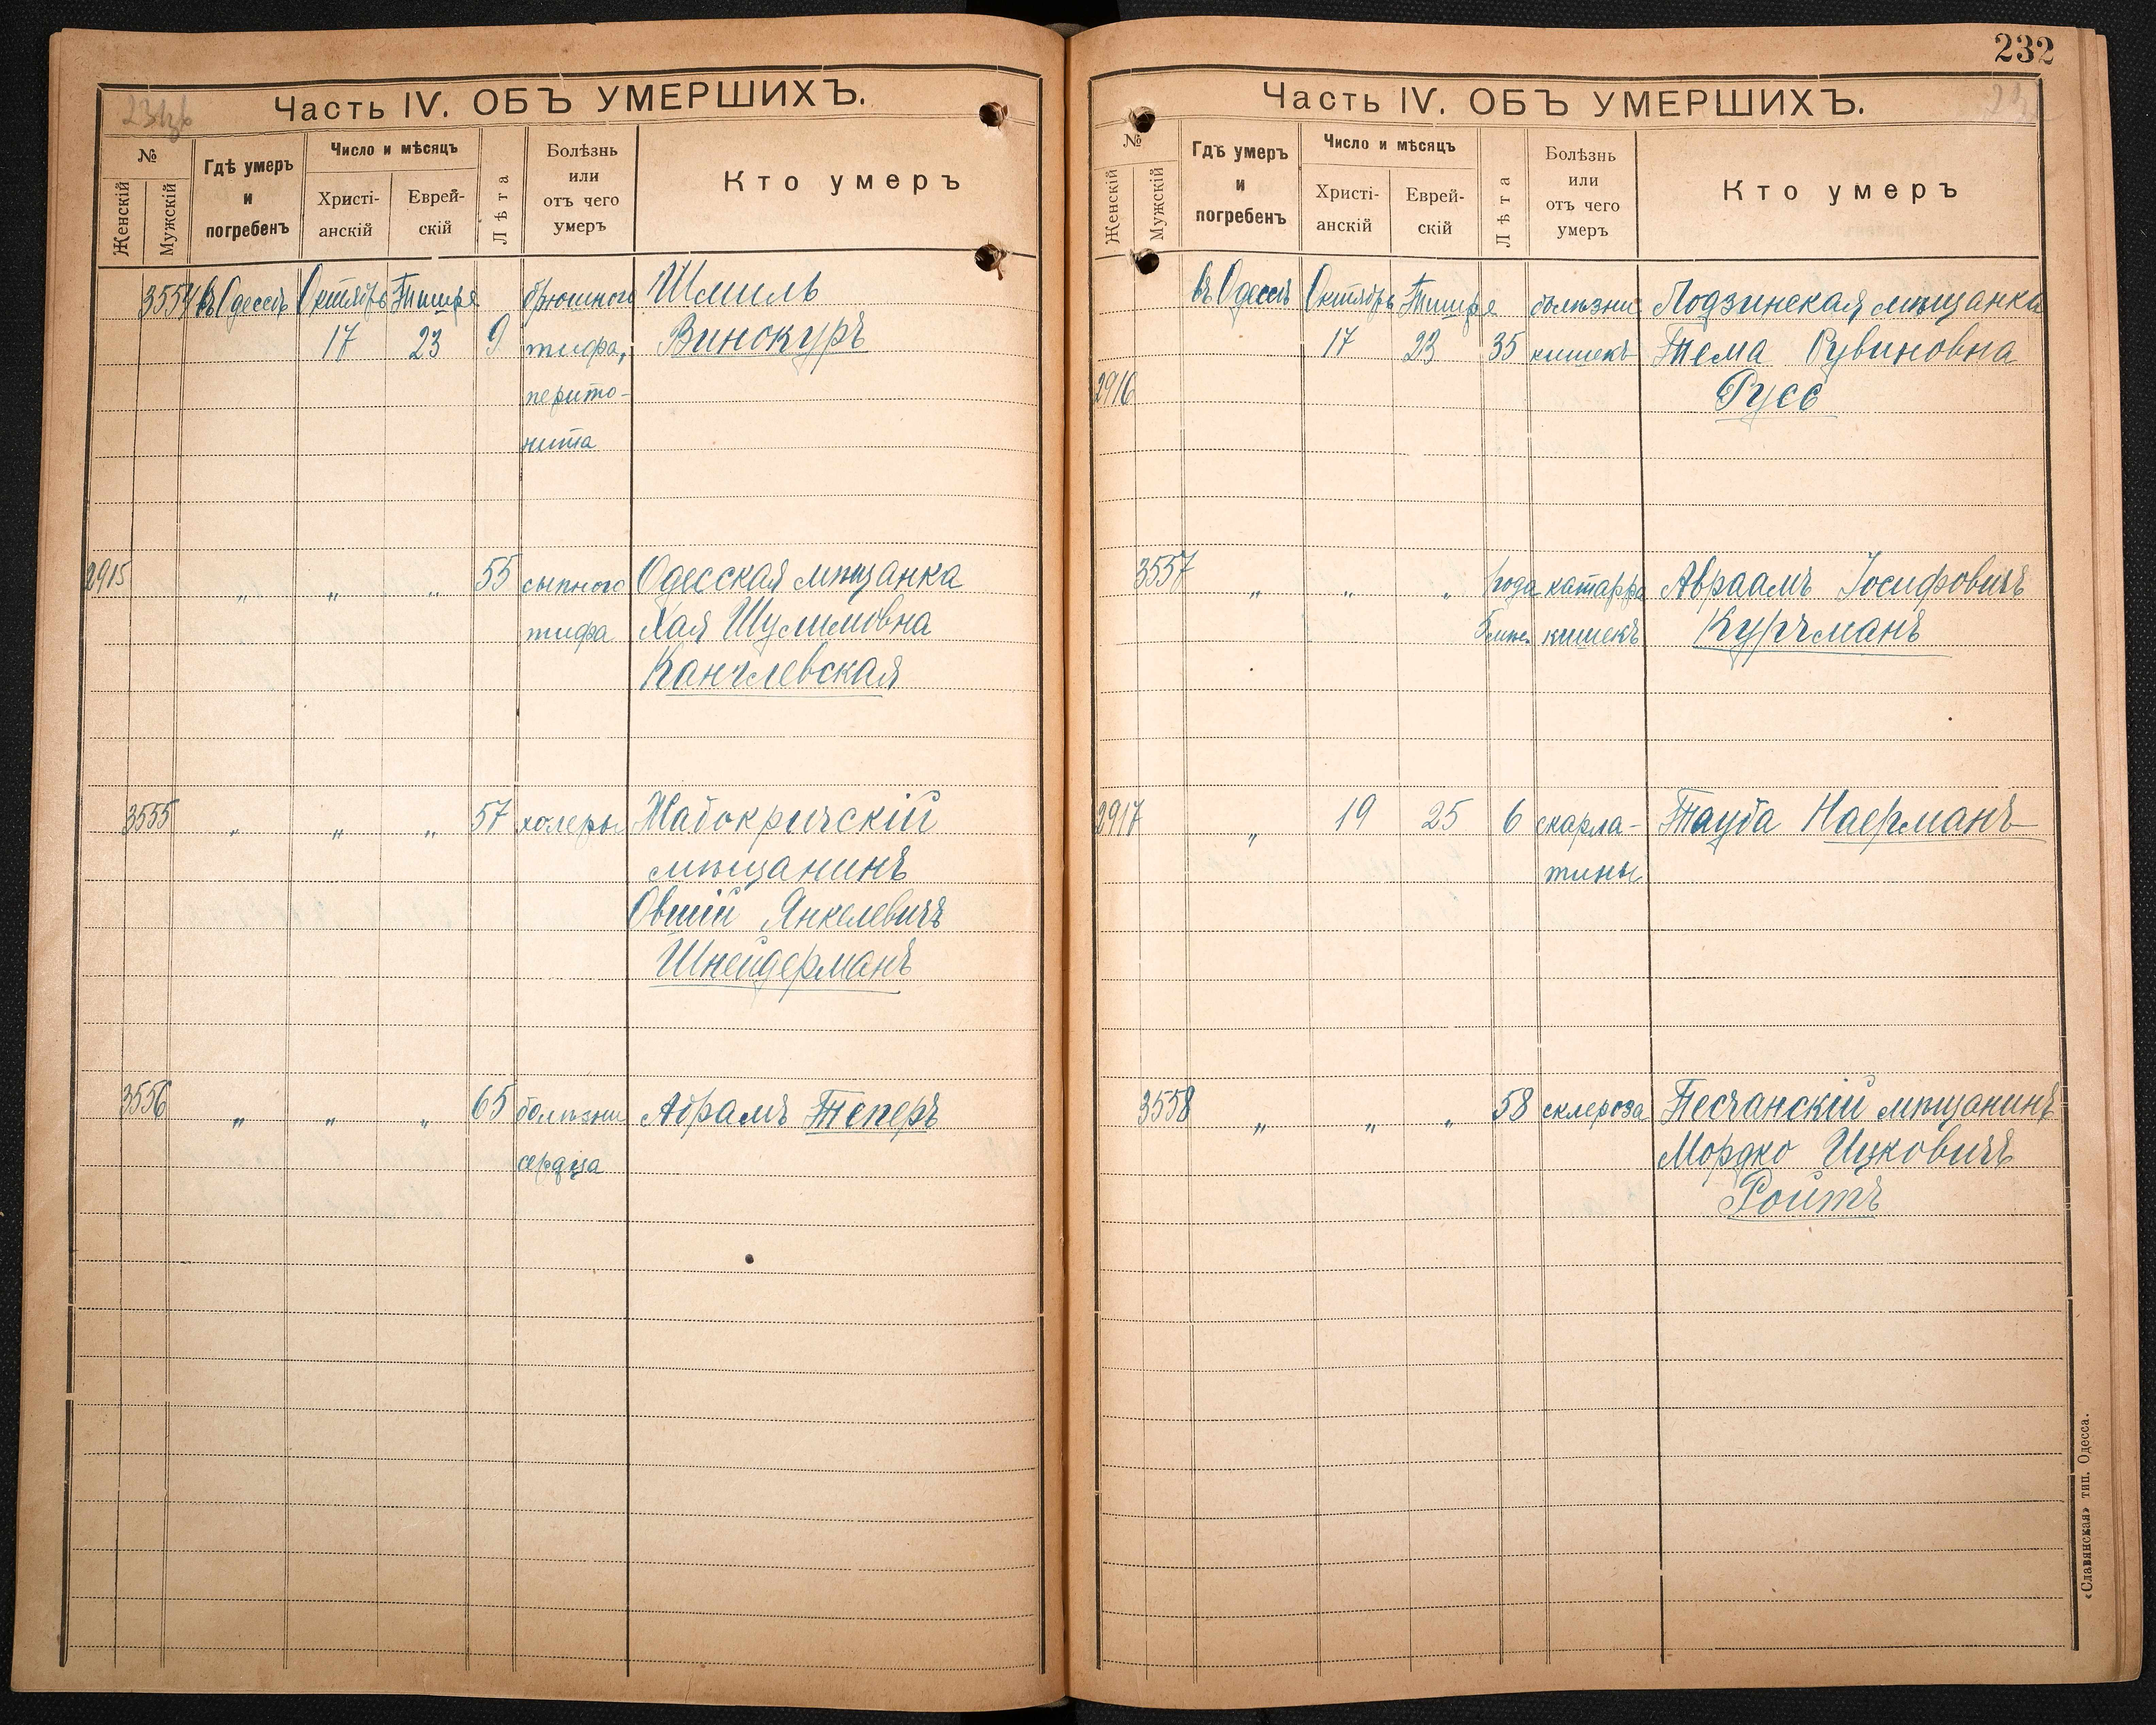 231об
Часть IV. ОБЪ УМЕРШИХЪ.
№
Женскій
Мужскій
Гдѣ умеръ
и
погребенъ
Число и мѣсяцъ
Христі-
анскій
Еврей-
скій
Лѣта
Болѣзнь
или
отъ чего
умеръ
Кто умеръ
3554 въ Одессѣ Октябрь Тишре брюшного Шмиль
17 23 9 тифа, Винокуръ
перито-
нита
2915 „ „ „ 55 сыпного Одесская мѣщанка
тифа Хая Шулимовна
Канглевская
3555 „ „ „ 57 холеры Жабокричскій
мѣщанинъ
Овшій Янкелевичъ
Шнейдерманъ
3556 „ „ „ 65 болѣзни Абрамъ Теперъ
сердца
232
Часть IV. ОБЪ УМЕРШИХЪ.
№
Женскій
Мужскій
Гдѣ умеръ
и
погребенъ
Число и мѣсяцъ
Христі-
анскій
Еврей-
скій
Лѣта
Болѣзнь
или
отъ чего
умеръ
Кто умеръ
въ Одессѣ Октябрь Тишре болѣзни Лодзинская мѣщанка
17 23 35 кишекъ Тема Рувиновна
2916 Русс
3557 „ „ „ 1 года катарра Авраамъ Іосифовичъ
кишекъ Курчманъ
2917 „ 19 25 6 скарла- Тауба Наерманъ
тины
3558 „ „ „ 58 склероза Песчанскій мѣщанинъ
Мордко Ицковичъ
Ройтъ
«Славянская» тип. Одесса.